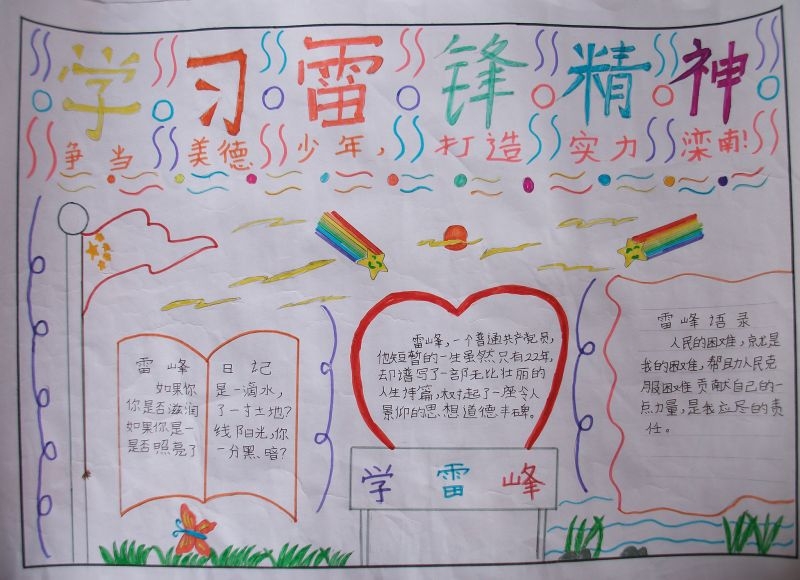 学习雷锋精神
争当美德少年,打造实力滦南!
雷峰日记
如果你是一滴水,
你是否滋润了一寸土地?
如果你是一线阳光,你
是否照亮了一分黑暗?
雷峰,一个普通共产党员,
他短暂的一生虽然只有22年,
却谱写了一部无比壮丽的
人生诗篇,树起了一座令人
景仰的思想道德丰碑。
学雷峰
雷峰语录
人民的困难,就是
我的困难,帮助人民克
服困难 贡献自己的一
点力量,是我应尽的责
任。